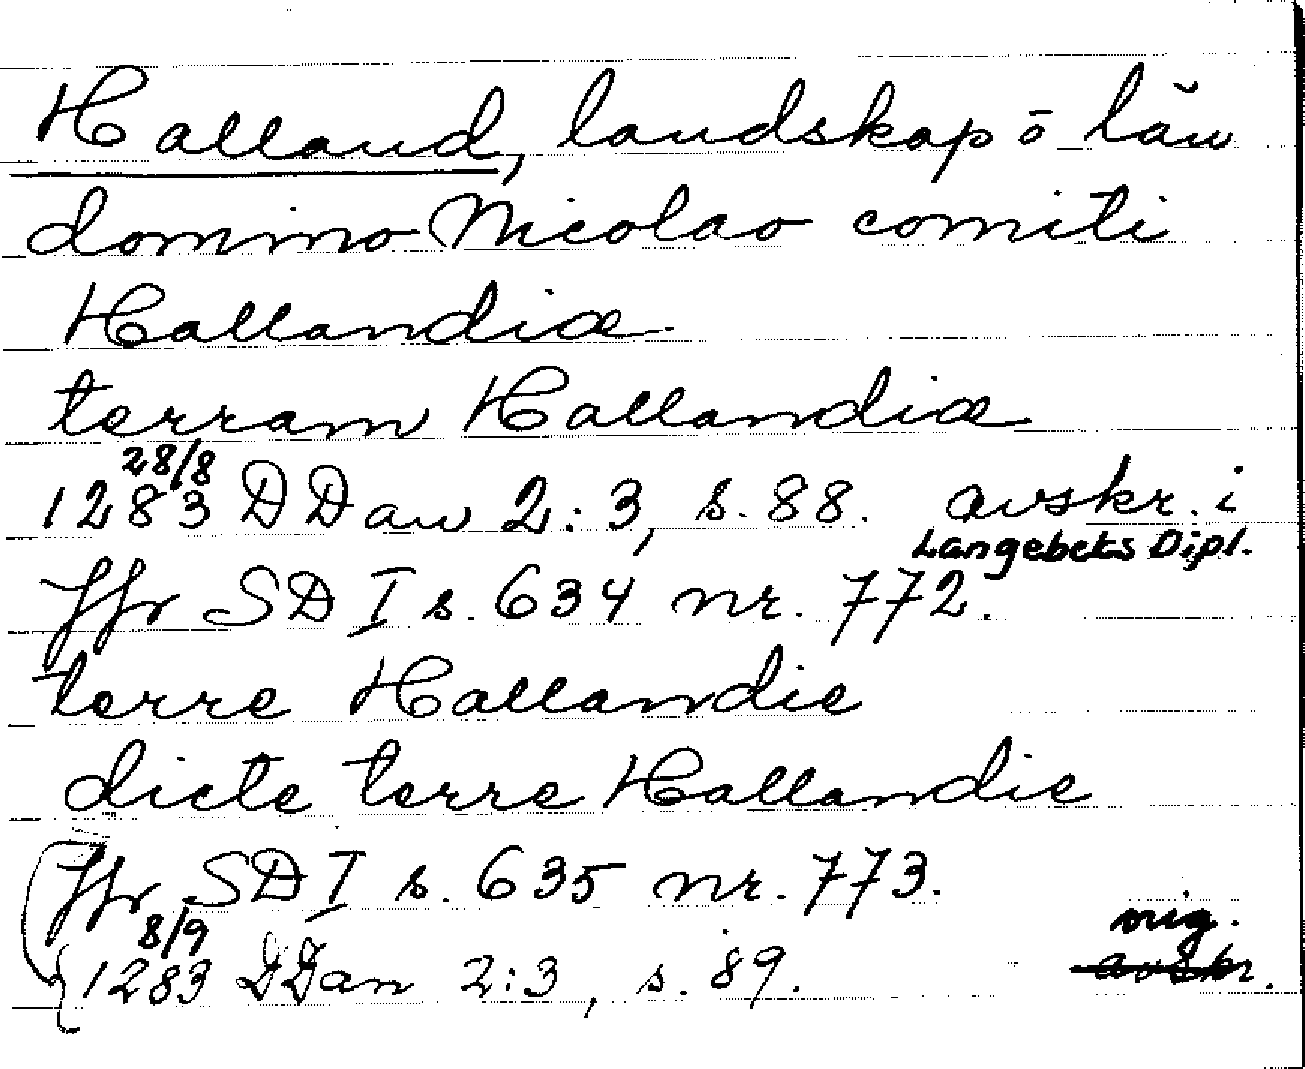 Halland, landskap ō län
domino Nicolao comiti
Hallandiæ
terram Hallandiæ
28/8
1283 DDan 2:3, s. 88. avskr. i
Langebeks Dipl.
Jfr SD I s. 634 nr. 772.
terre Hallandie
dicte terre Hallandie
Jfr SD I s. 635 nr. 773.
8/9 orig.
1283 DDan 2:3, s. 89. avskr.